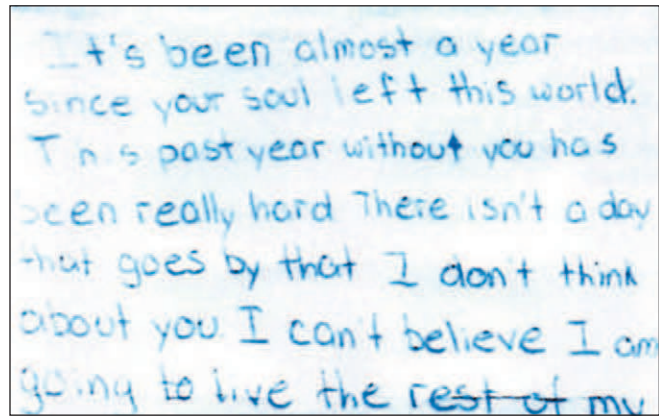 It's been almost a year
since your soul left this world.
This past year without you has
been really hard There isn't a day
that goes by that I don't think
about you. I can't believe I am
going to live the rest of my